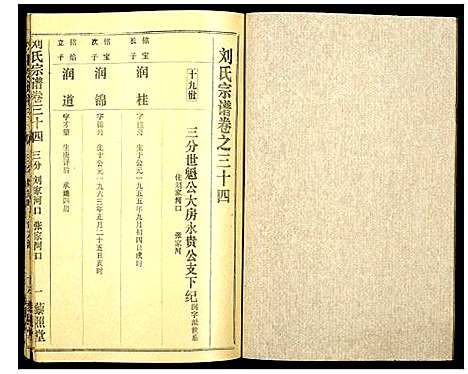 刘氏宗谱卷之三十四
三分世魁公大房永贵公支下纪 润字派世系
住刘家河口 张家河
十九世
铭宝长子 润桂
生于公元一九五五年九月初四日戌时
铭宝次子 润锦
生于公元一九六三年正月二十五日亥时
立子 润道
刘氏宗谱卷三十四
三分 刘家河口 张家河口
一 藜照堂